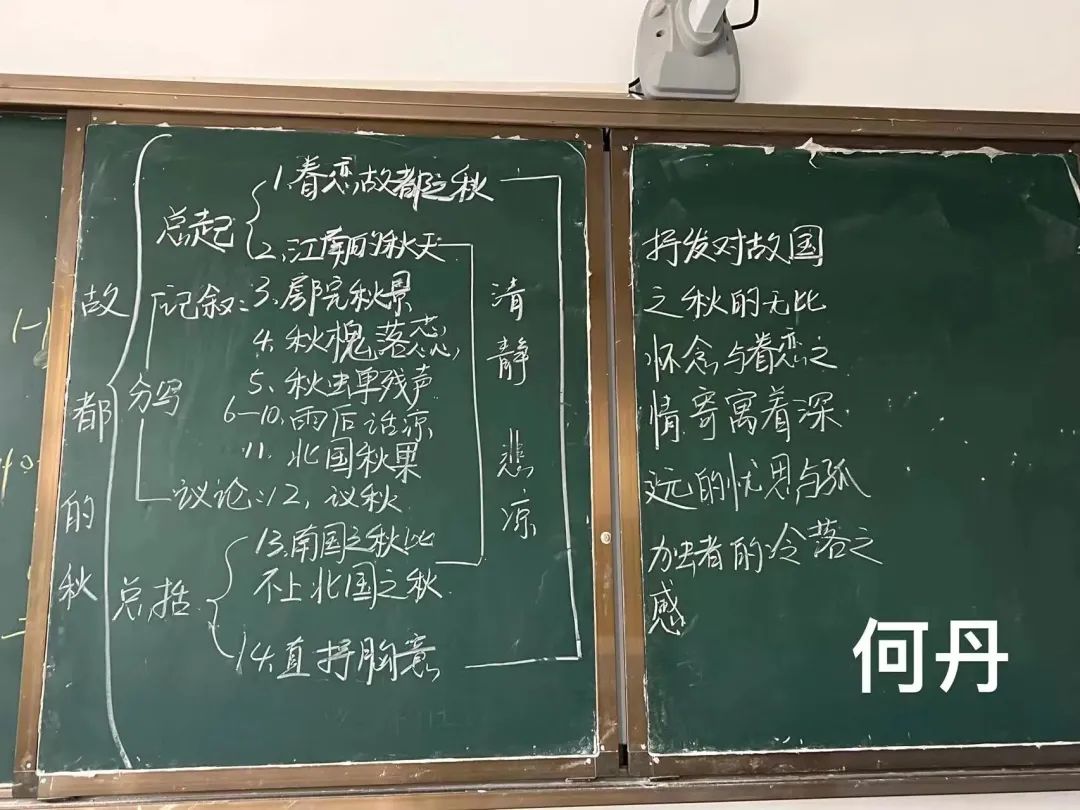 故都的秋
总起
1.眷恋故都之秋
2.江南的秋天
分写
记叙:
3.院秋景
4.秋槐落蕊
5.秋虫单残声
6—10.雨后话凉
11.北国秋果
议论:12.议秋
总括
13.南国之秋比
不上北国之秋
14.直抒胸意
清静悲凉
抒发对故国
之秋的无比
怀念与眷恋之
情寄寓着深
远的忧思与孤
者的冷落之
感
何丹